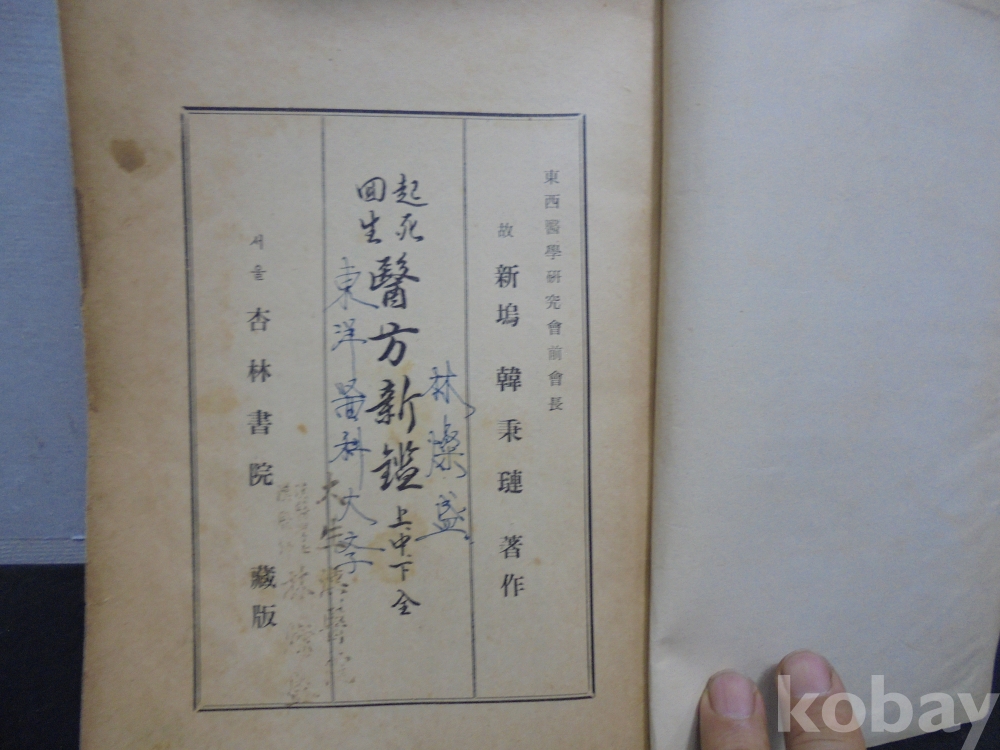 東西醫學硏究會前會長
故 新塢 韓秉璉 著作
起死
回生
醫方新鑑 上中下全
林燦盛
東洋醫科大学
서울 杏林書院 藏版
kobay